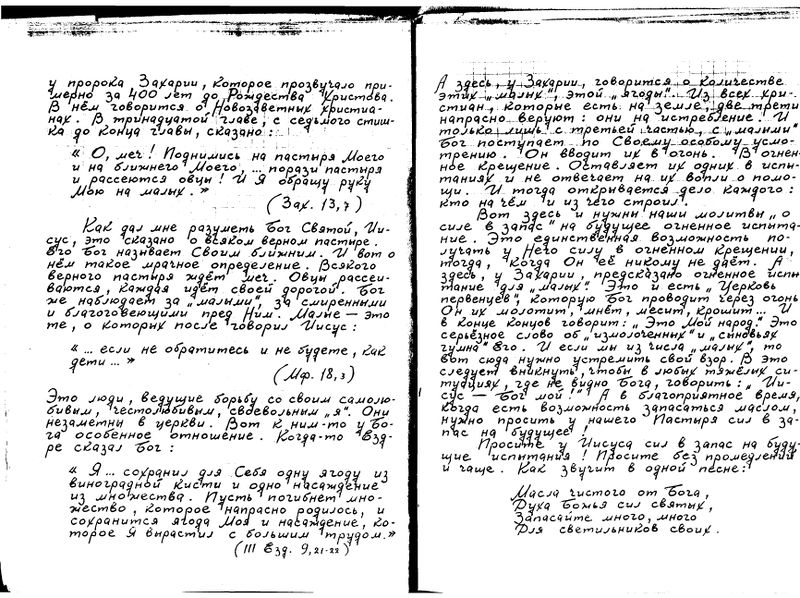 у пророка Захарии, которое прозвучало при-
мерно за 400 лет до Рождества Христова.
В нём говорится о Новозаветных христиа-
нах. В тринадцатой главе, с седьмого стиш-
ка до конца главы, сказано:
« О, меч! Поднимись на пастыря Моего
и на ближнего Моего, ... порази пастыря
и рассеются овцы! И Я обращу руку
Мою на малых. »
(Зах. 13,7)
Как дал мне разуметь Бог Святой, Ии-
сус, это сказано о всяком верном пастыре.
Его Бог называет Своим ближним. И вот о
нём такое мрачное определение. Всякого
верного пастыря ждёт меч. Овцы рассеи-
ваются, каждая идёт своей дорогой. Бог
же наблюдает за „малыми", за смиренными
и благоговеющими пред Ним. Малые — это
те, о которых после говорил Иисус:
« ... если не обратитесь и не будете, как
дети ... »
(Мф. 18,3)
Это люди, ведущие борьбу со своим самолю-
бивым, честолюбивым, своевольным „я". Они
незаметны в церкви. Вот к ним-то у Бо-
га особенное отношение. Когда-то Езд-
ре сказал Бог:
« Я ... сохранил для Себя одну ягоду из
виноградной кисти и одно насаждение
из множества. Пусть погибнет мно-
жество, которое напрасно родилось, и
сохранится ягода Моя и насаждение, ко-
торое Я вырастил с большим трудом.»
(III Езд. 9,21-22)
А здесь, у Захарии, говорится о количестве
этих „малых", этой „ягоды". Из всех хри-
стиан, которые есть на земле, две трети
напрасно веруют: они на истребление. И
только лишь с третьей частью, с „малыми"
Бог поступает по Своему особому усмо-
трению. Он вводит их в огонь. В огнен-
ное крещение. Оставляет их одних в испы-
таниях и не отвечает на их вопли о помо-
щи. И тогда открывается дело каждого:
кто на чём и из чего строил.
Вот здесь и нужны наши молитвы „о
силе в запас" на будущее огненное испыта-
ние. Это единственная возможность по-
лучать у Него силу в огненном крещении,
тогда, когда Он её никому не даёт. А
здесь, у Захарии, предсказано огненное испы-
тание для „малых". Это и есть „Церковь
первенцев", которую Бог проводит через огонь.
Он их молотит, мнёт, месит, крошит... И
в конце концов говорит: „Это Мой народ." Это
серьёзное слово об „измолоченных" и „сыновьях
гумна" Его. И если мы из числа „малых", то
вот сюда нужно устремить свой взор. В это
следует вникнуть, чтобы в любых тяжёлых си-
туациях, где не видно Бога, говорить: „Ии-
сус — Бог мой!" А в благоприятное время,
когда есть возможность запасаться маслом,
нужно просить у нашего Пастыря сил в за-
пас на будущее!
Просите у Иисуса сил в запас на буду-
щие испытания! Просите без промедления
и чаще. Как звучит в одной песне:
Масла чистого от Бога,
Духа Божья сил святых,
Запасайте много, много
Для светильников своих.